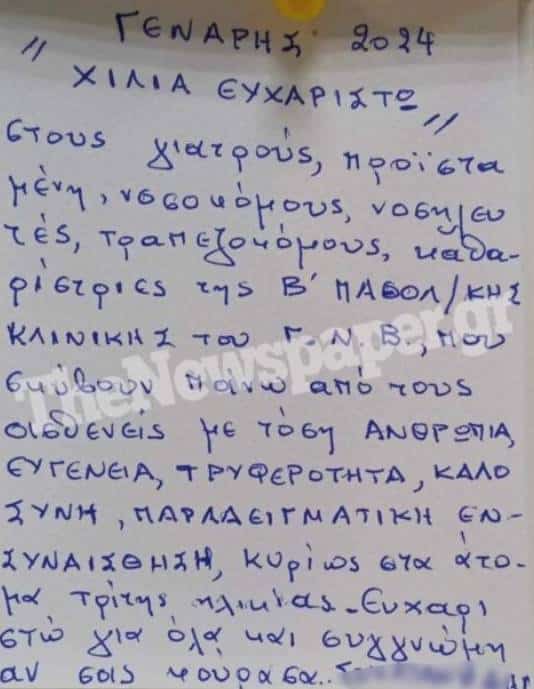 ΓΕΝΑΡΗΣ 2024
"ΧΙΛΙΑ ΕΥΧΑΡΙΣΤΩ"
στους γιατρούς, προϊστα
μένη, νοσοκόμους, νοσηλευ
τές, τραπεζοκόμους, καθα-
ρίστριες της Β' ΠΑΘΟΛ/ΚΗΣ
ΚΛΙΝΙΚΗΣ του Γ.Ν.Β., που
σκύβουν πάνω από τους
ασθενείς με τόση ΑΝΘΡΩΠΙΑ,
ΕΥΓΕΝΕΙΑ, ΤΡΥΦΕΡΟΤΗΤΑ, ΚΑΛΟ
ΣΥΝΗ, ΠΑΡΑΔΕΙΓΜΑΤΙΚΗ ΕΝ-
ΣΥΝΑΙΣΘΗΣΗ, κυρίως στα άτο-
μα τρίτης ηλικίας - Ευχαρι
στώ για όλα και συγγνώμη
αν σας κούρασα..
TheNewspaper.gr